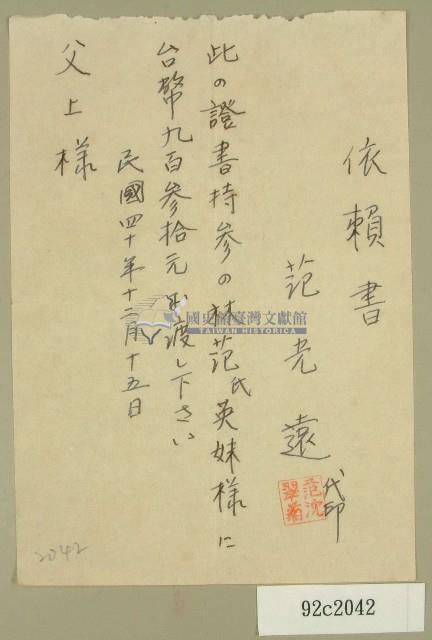 依賴書
范光遠 代印
范沈翠菊
此の證書持参の林范氏英妹様に
台幣九百参拾元お渡し下さい
民國四十年十二月十五日
父上様
國史館臺灣文獻館
TAIWAN HISTORICA
2042
92c2042